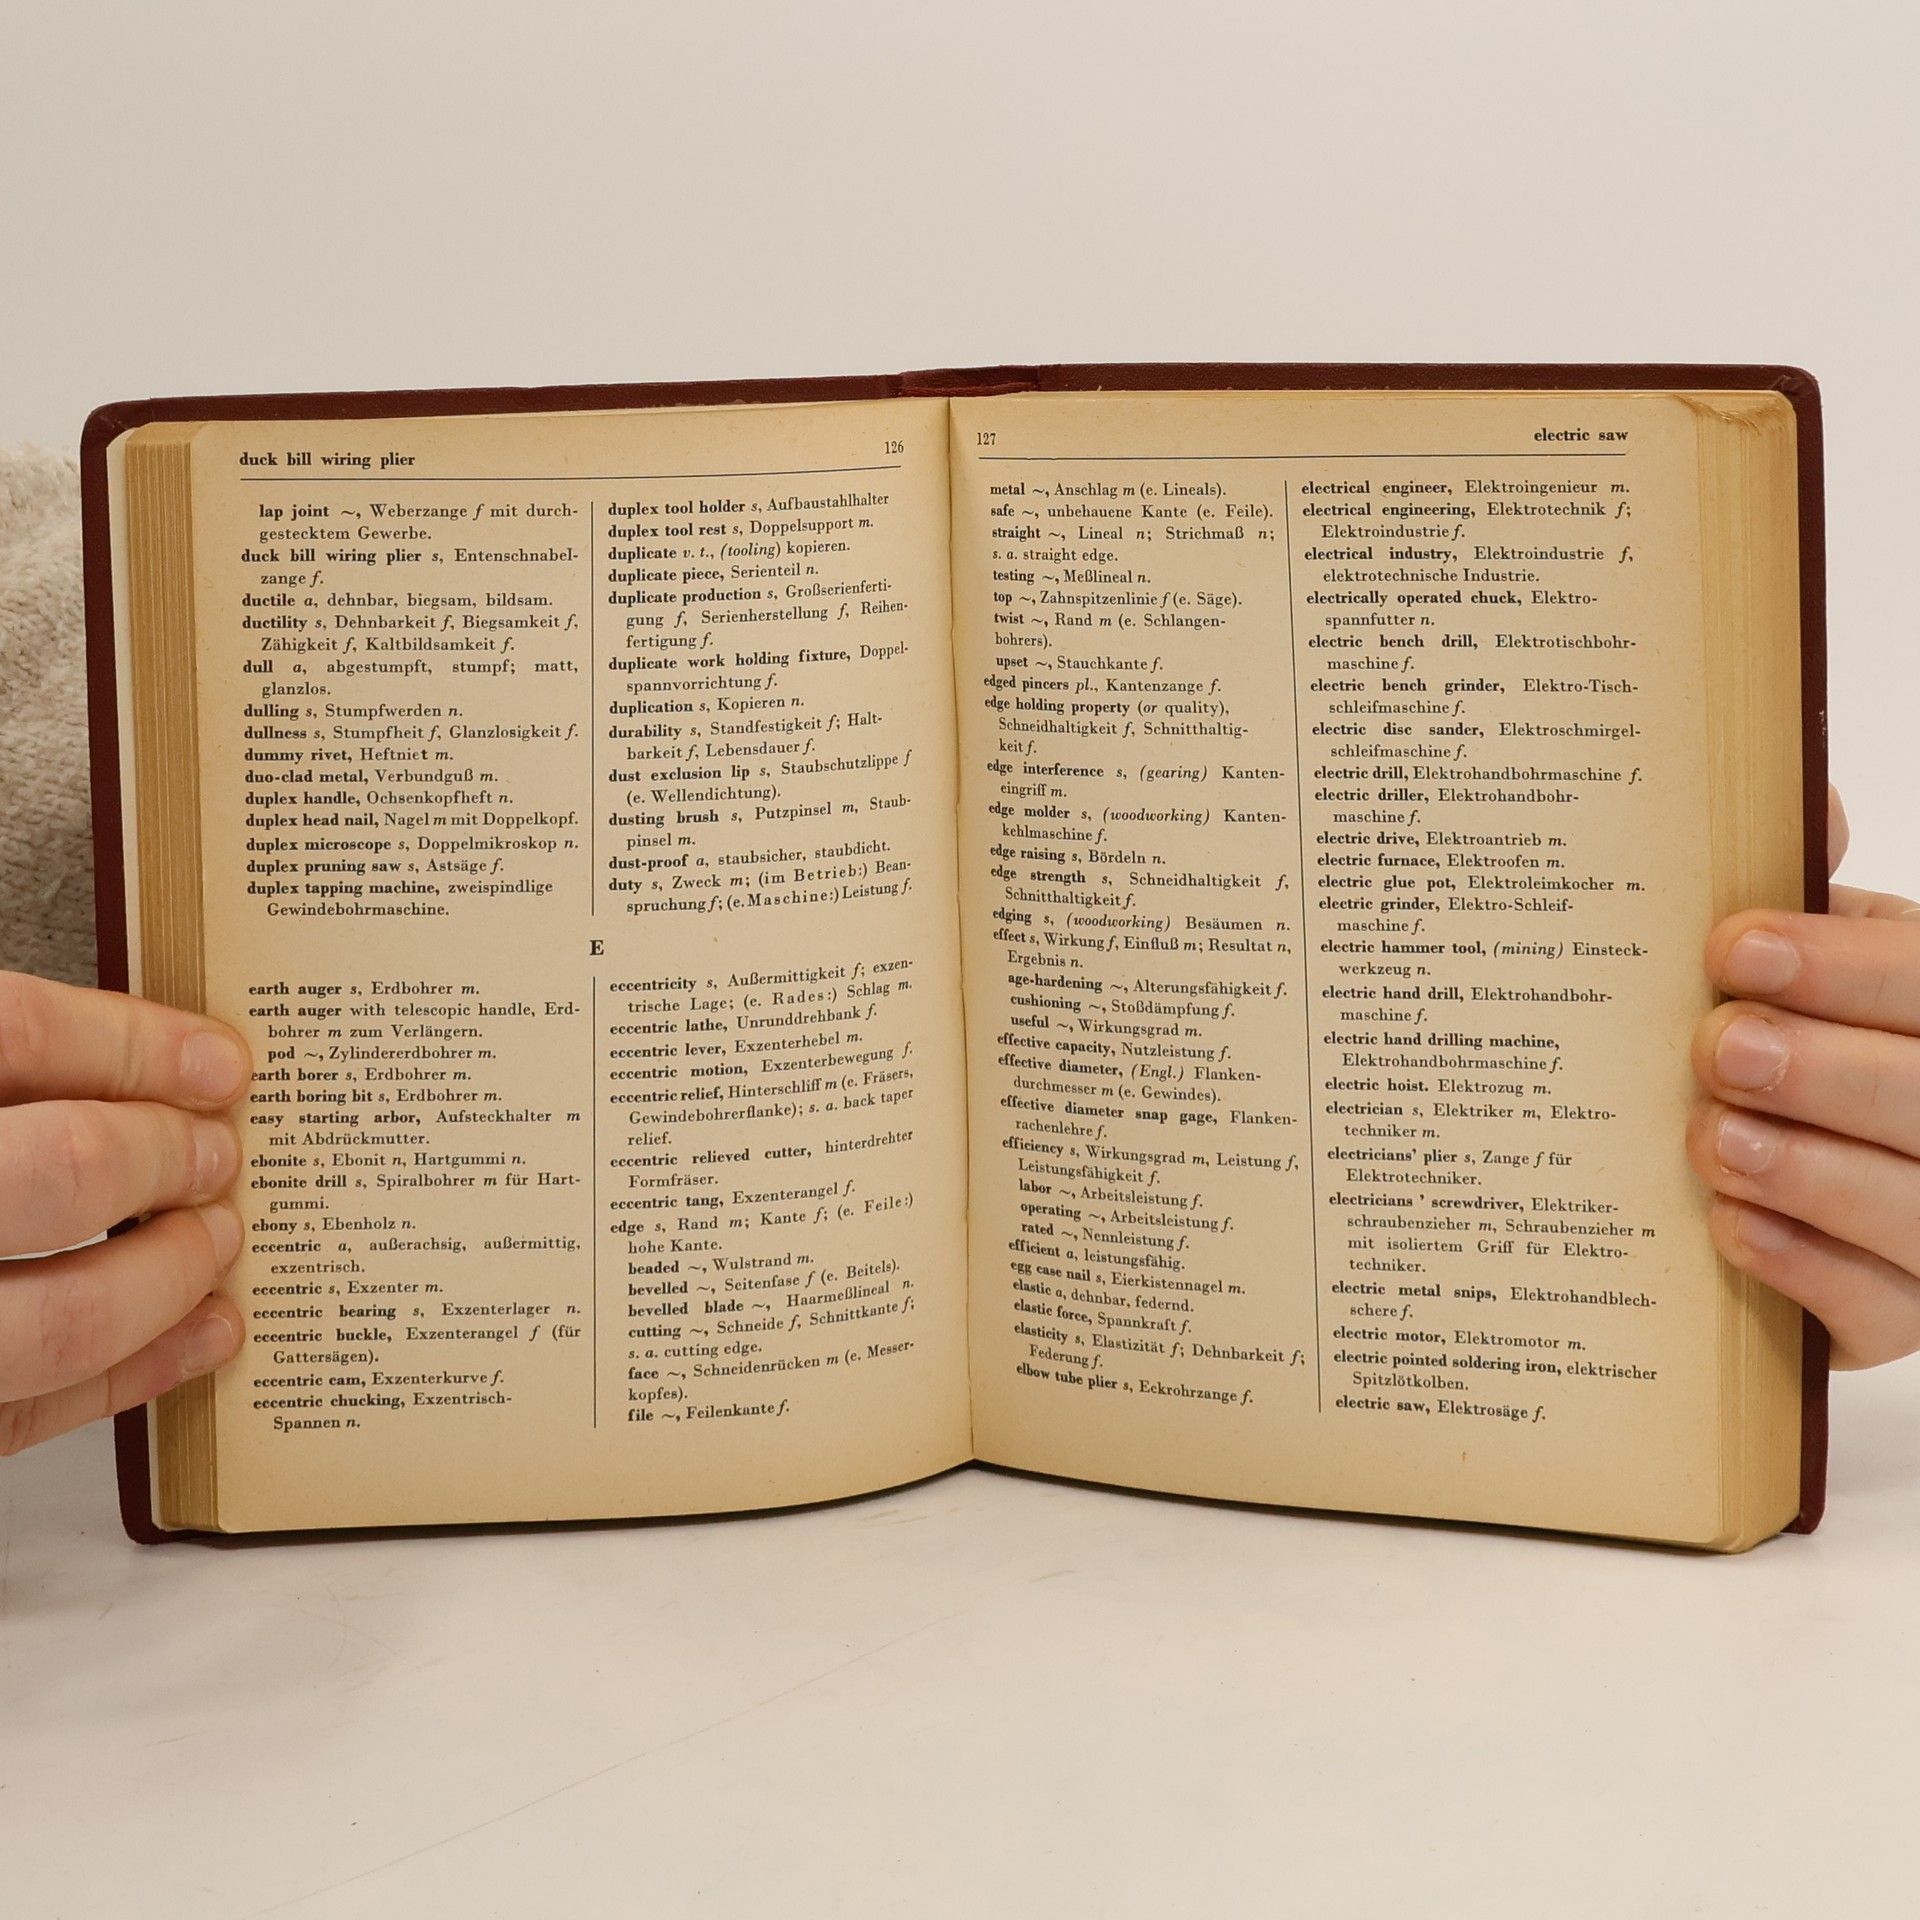 duck bill wiring plier
126
lap joint ~, Weberzange f mit durch-
gestecktem Gewerbe.
duck bill wiring plier s, Entenschnabel-
zange f.
ductile a, dehnbar, biegsam, bildsam.
ductility s, Dehnbarkeit f, Biegsamkeit f,
Zähigkeit f, Kaltbildsamkeit f.
dull a, abgestumpft, stumpf; matt,
glanzlos.
dulling s, Stumpfwerden n.
dullness s, Stumpfheit f, Glanzlosigkeit f.
dummy rivet, Heftniet m.
duo-clad metal, Verbundguß m.
duplex handle, Ochsenkopfheft n.
duplex head nail, Nagel m mit Doppelkopf.
duplex microscope s, Doppelmikroskop n.
duplex pruning saw s, Astsäge f.
duplex tapping machine, zweispindlige
Gewindebohrmaschine.
duplex tool holder s, Aufbaustahlhalter
duplex tool rest s, Doppelsupport m.
duplicate v. t., (tooling) kopieren.
duplicate piece, Serienteil n.
duplicate production s, Großserienferti-
gung f, Serienherstellung f, Reihen-
fertigung f.
duplicate work holding fixture, Doppel-
spannvorrichtung f.
duplication s, Kopieren n.
durability s, Standfestigkeit f; Halt-
barkeit f, Lebensdauer f.
dust exclusion lip s, Staubschutzlippe f
(e. Wellendichtung).
dusting brush s, Putzpinsel m, Staub-
pinsel m.
dust-proof a, staubsicher, staubdicht.
duty s, Zweck m; (im Betrieb:) Bean-
spruchung f; (e. Maschine:) Leistung f.
E
earth auger s, Erdbohrer m.
earth auger with telescopic handle, Erd-
bohrer m zum Verlängern.
pod ~, Zylindererdbohrer m.
earth borer s, Erdbohrer m.
earth boring bit s, Erdbohrer m.
easy starting arbor, Aufsteckhalter m
mit Abdrückmutter.
ebonite s, Ebonit n, Hartgummi n.
ebonite drill s, Spiralbohrer m für Hart-
gummi.
ebony s, Ebenholz n.
eccentric a, außerachsig, außermittig,
exzentrisch.
eccentric s, Exzenter m.
eccentric bearing s, Exzenterlager n.
eccentric buckle, Exzenterangel f (für
Gattersägen).
eccentric cam, Exzenterkurve f.
eccentric chucking, Exzentrisch-
Spannen n.
eccentricity s, Außermittigkeit f; exzen-
trische Lage; (e. Rades:) Schlag m.
eccentric lathe, Unrunddrehbank f.
eccentric lever, Exzenterhebel m.
eccentric motion, Exzenterbewegung f.
eccentric relief, Hinterschliff m (e. Fräsers,
Gewindebohrerflanke); s. a. back taper
relief.
eccentric relieved cutter, hinterdrehter
Formfräser.
eccentric tang, Exzenterangel f.
edge s, Rand m; Kante f; (e. Feile:)
hohe Kante.
beaded ~, Wulstrand m.
bevelled ~, Seitenfase f (e. Beitels).
bevelled blade ~, Haarmeßlineal n.
cutting ~, Schneide f, Schnittkante f;
s. a. cutting edge.
face ~, Schneidenrücken m (e. Messer-
kopfes).
file ~, Feilenkante f.
127
electric saw
metal ~, Anschlag m (e. Lineals).
safe ~, unbehauene Kante (e. Feile).
straight ~, Lineal n; Strichmaß n;
s. a. straight edge.
testing ~, Meßlineal n.
top ~, Zahnspitzenlinie f (e. Säge).
twist ~, Rand m (e. Schlangen-
bohrers).
upset ~, Stauchkante f.
edged pincers pl., Kantenzange f.
edge holding property (or quality),
Schneidhaltigkeit f, Schnitthaltig-
keit f.
edge interference s, (gearing) Kanten-
eingriff m.
edge molder s, (woodworking) Kanten-
kehlmaschine f.
edge raising s, Bördeln n.
edge strength s, Schneidhaltigkeit f,
Schnitthaltigkeit f.
edging s, (woodworking) Besäumen n.
effect s, Wirkung f, Einfluß m; Resultat n,
Ergebnis n.
age-hardening ~, Alterungsfähigkeit f.
cushioning ~, Stoßdämpfung f.
useful ~, Wirkungsgrad m.
effective capacity, Nutzleistung f.
effective diameter, (Engl.) Flanken-
durchmesser m (e. Gewindes).
effective diameter snap gage, Flanken-
rachenlehre f.
efficiency s, Wirkungsgrad m, Leistung f,
Leistungsfähigkeit f.
labor ~, Arbeitsleistung f.
operating ~, Arbeitsleistung f.
rated ~, Nennleistung f.
efficient a, leistungsfähig.
egg case nail s, Eierkistennagel m.
elastic a, dehnbar, federnd.
elastic force, Spannkraft f.
elasticity s, Elastizität f; Dehnbarkeit f;
Federung f.
elbow tube plier s, Eckrohrzange f.
electrical engineer, Elektroingenieur m.
electrical engineering, Elektrotechnik f;
Elektroindustrie f.
electrical industry, Elektroindustrie f,
elektrotechnische Industrie.
electrically operated chuck, Elektro-
spannfutter n.
electric bench drill, Elektrotischbohr-
maschine f.
electric bench grinder, Elektro-Tisch-
schleifmaschine f.
electric disc sander, Elektroschmirgel-
schleifmaschine f.
electric drill, Elektrohandbohrmaschine f.
electric driller, Elektrohandbohr-
maschine f.
electric drive, Elektroantrieb m.
electric furnace, Elektroofen m.
electric glue pot, Elektroleimkocher m.
electric grinder, Elektro-Schleif-
maschine f.
electric hammer tool, (mining) Einsteck-
werkzeug n.
electric hand drill, Elektrohandbohr-
maschine f.
electric hand drilling machine,
Elektrohandbohrmaschine f.
electric hoist. Elektrozug m.
electrician s, Elektriker m, Elektro-
techniker m.
electricians' plier s, Zange f für
Elektrotechniker.
electricians ' screwdriver, Elektriker-
schraubenzieher m, Schraubenzieher m
mit isoliertem Griff für Elektro-
techniker.
electric metal snips, Elektrohandblech-
schere f.
electric motor, Elektromotor m.
electric pointed soldering iron, elektrischer
Spitzlötkolben.
electric saw, Elektrosäge f.